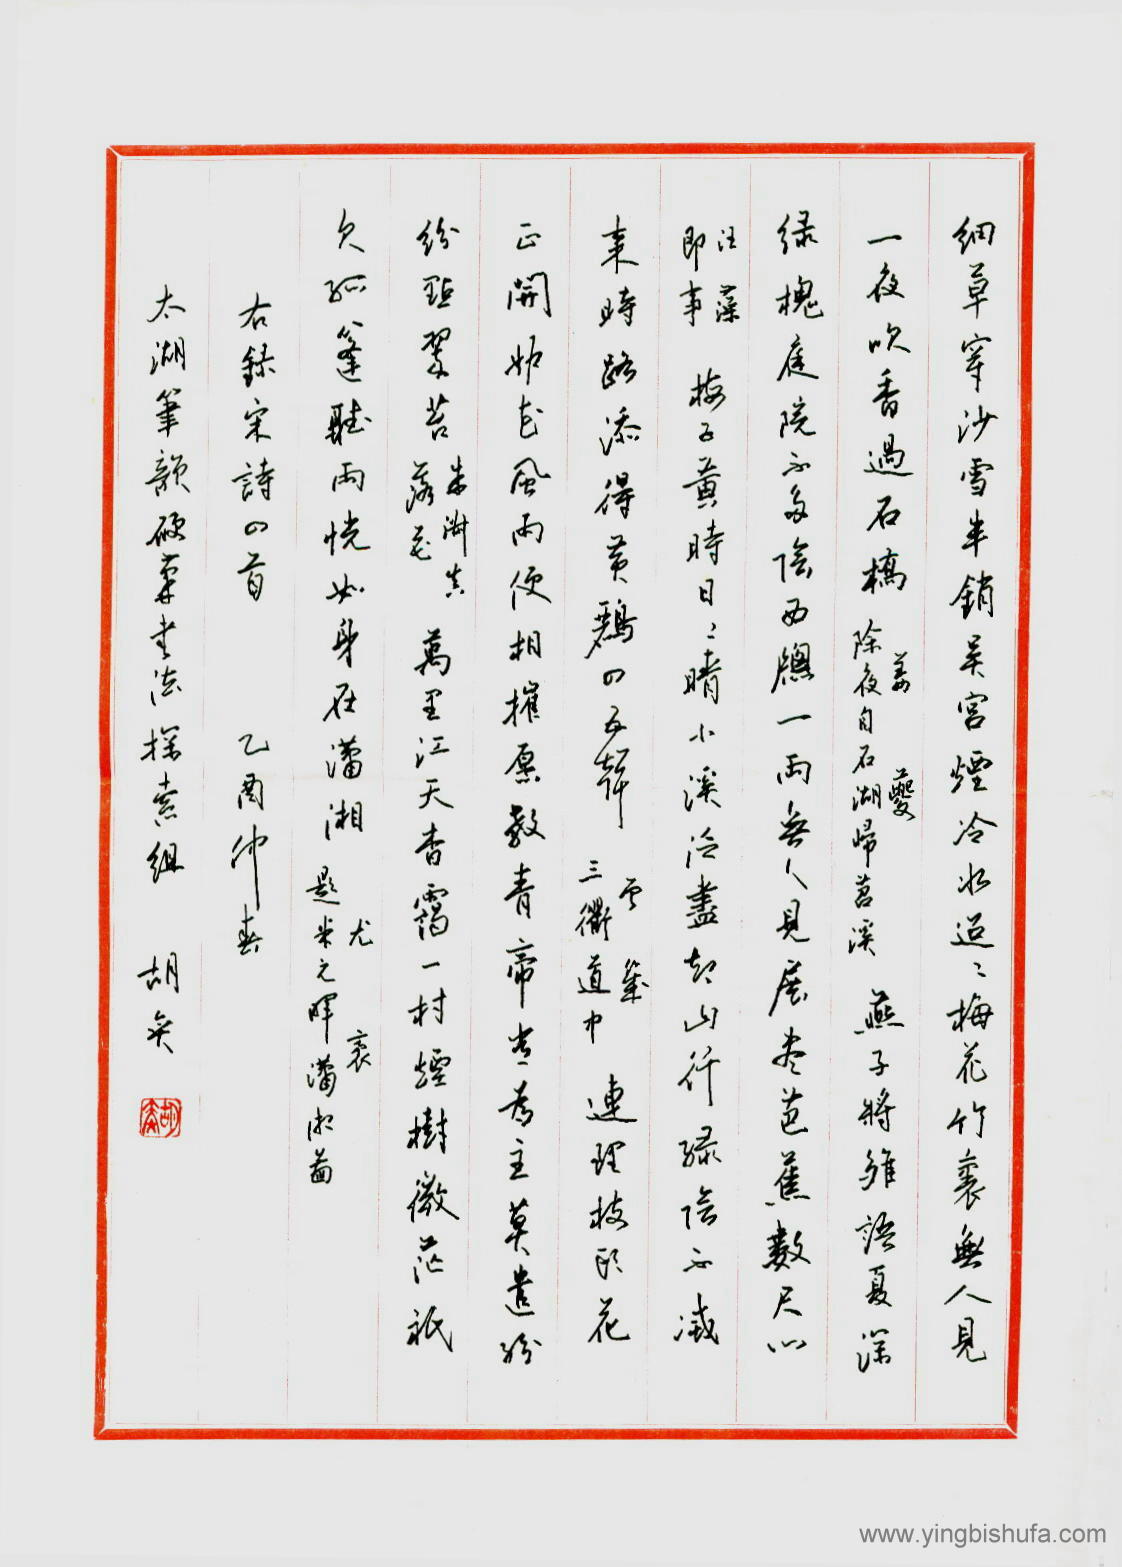 細草穿沙雪半銷吳宮煙冷水迢〻梅花竹裏無人見
一夜吹香過石橋 姜夔 除夜自石湖歸苕溪 燕子將雛語夏深
绿槐庭院不多陰西牕一雨無人見展尽芭蕉數尺心
汪藻 即事 梅子黄時日〻晴小溪泛盡却山行绿陰不減
来時路添得黄鸝四五聲 曾幾 三衢道中 連理枝頭花
正開妒花風雨便相摧愿教青帝常為主莫遣紛
紛點翠苔 朱淑真 落花 萬里江天杳靄一村煙樹微茫祇
欠孤篷聽雨恍如身在瀟湘 尤袤 題米元暉瀟湘圖
右録宋詩四首 乙酉仲春
太湖筆韻硬筆书法探索組 胡奕
www.yingbishufa.com